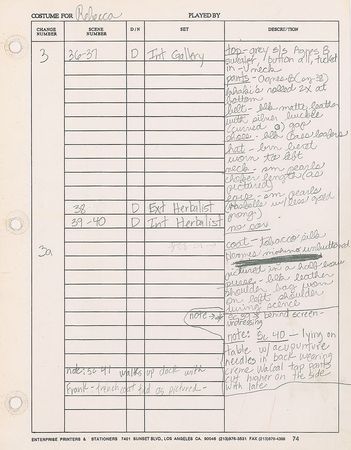 COSTUME FOR Rebecca PLAYED BY
CHANGE NUMBER SCENE NUMBER D/N SET DESCRIPTION
3 36-37 D Int Gallery
top - grey s/s Agnes B
sweater, button all, tucked
in - V neck
pants - Agnes B
khakis rolled 2x at
bottom
belt - blk matte leather
with silver buckle
(curved) gap
shoes - blk Bass loafers
hat - brn beret
worn to left
neck - sm pearls
choker length (as
pictured)
ears - sm pearls
w/ less gold
38 D Ext Herbalist
39-40 D Int Herbalist
3a
coat - tobacco silk
unbuttoned
pictured in a half bow
purse - blk leather
shoulder bag worn
on left shoulder
during scene
note → sc 39 behind screen -
undressing
note: sc 40 - lying on
table w/ acupuncture
needles in back wearing
creme tap pants
cut higher on the side
with lace
note: Sc 41 walks up dock with
Frank - trench coat tied as pictured -
ENTERPRISE PRINTERS & STATIONERS 7401 SUNSET BLVD., LOS ANGELES CA. 90046 (213)876-3531 FAX (213)876-4398 74